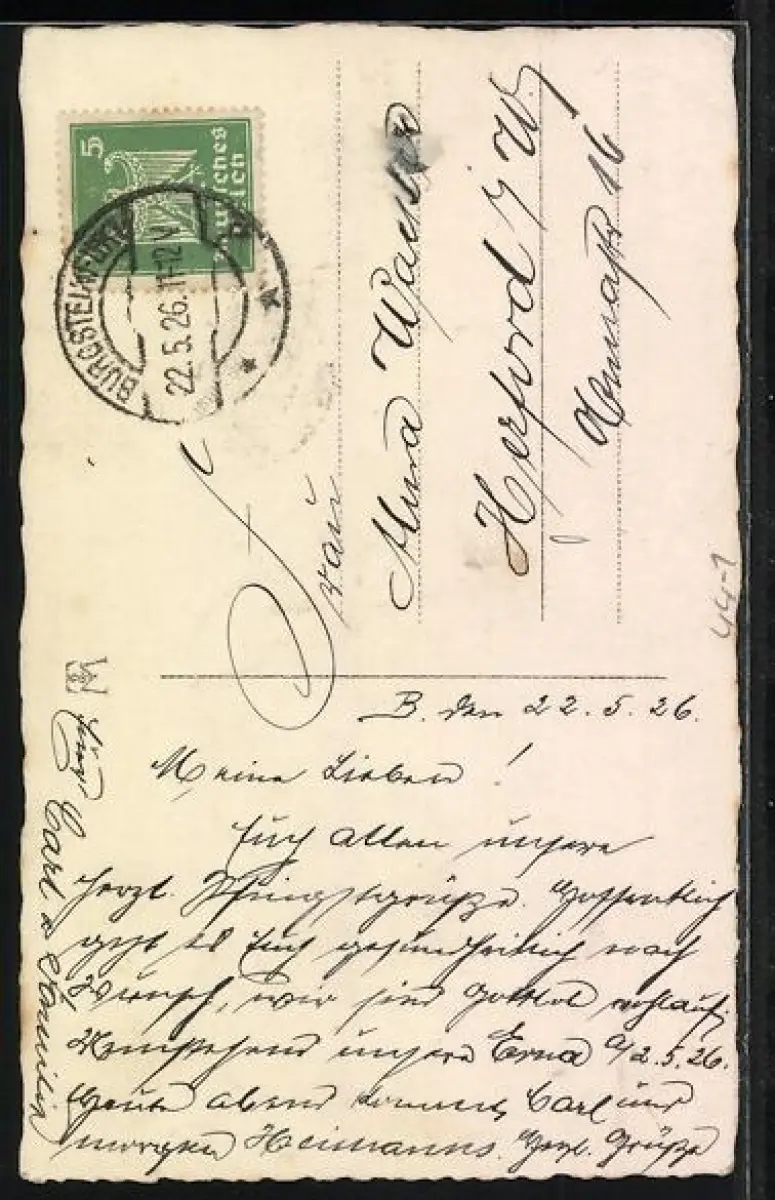 5
Deutsches Reich
BURGSTEINFURT
22.5.26.11-12V
Frau
Herford i/W.
16
44-1
B. den 22.5.26.
Meine Lieben!
Euch allen unsere
herzl. Pfingstgrüße. Hoffentlich
geht es Euch gesundheitlich nach
Wunsch, wir sind gottlob wohlauf.
Umstehend unsere Erna a/2.5.26.
Heute abend kommt Carl und
morgen Heimanns. Herzl. Grüße
Carl & Familie